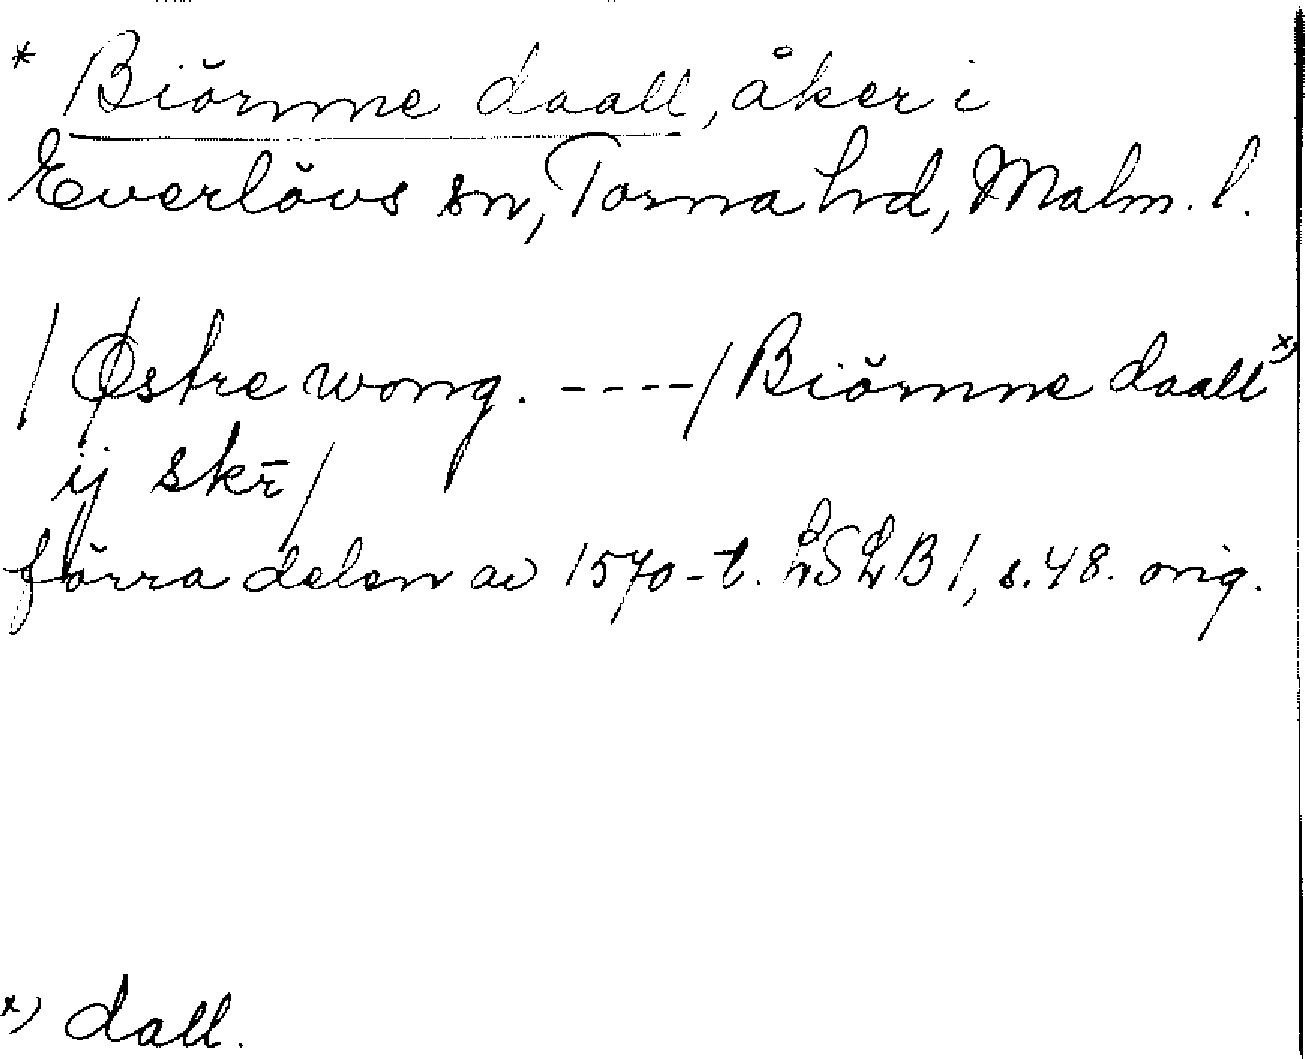 * Biörnne daall, åker i
Everlövs sn, Torna hd, Malm. l.
/ Østre wong. ----/ Biörnne daall x)
ij skr̄ /
förra delen av 1570-t. LSLB 1, s. 48. orig.
x) dall.